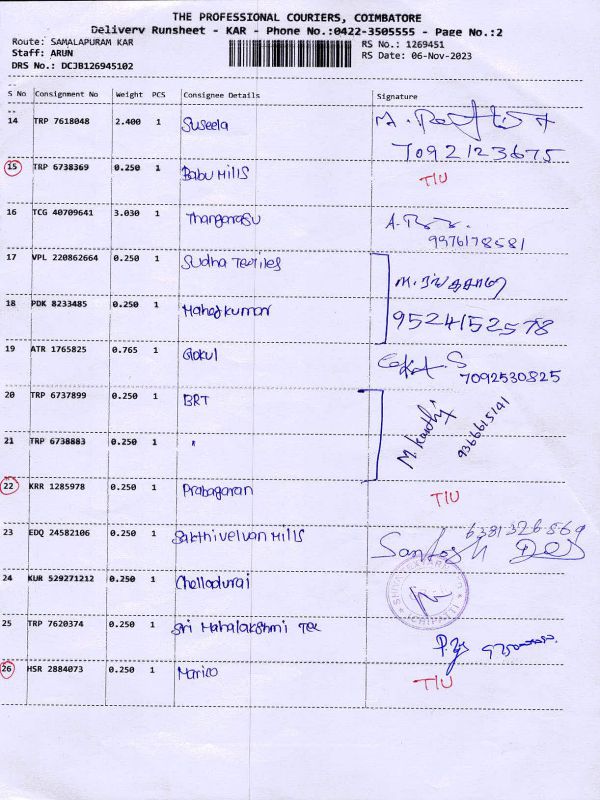 THE PROFESSIONAL COURIERS, COIMBATORE
Delivery Runsheet - KAR - Phone No.:0422-3505555 - Page No.:2
Route: SAMALAPURAM KAR
Staff: ARUN
DRS No.: DCJB126945102
RS No.: 1269451
RS Date: 06-Nov-2023
S No Consignment No Weight PCS Consignee Details Signature
14 TRP 7618048 2.400 1 Suseela
7092123675
15 TRP 6738369 0.250 1 Babu Mills T/U
16 TCG 40709641 3.030 1 Thangarasu
9976178581
17 VPL 220862664 0.250 1 Sudha Textiles
18 PDK 8233485 0.250 1
9524152578
19 ATR 1765825 0.765 1 Gokul
7092530825
20 TRP 6737899 0.250 1 BRT M. Karthi
9366615141
21 TRP 6738883 0.250 1 "
22 KRR 1285978 0.250 1 Prabagaran T/U
23 EDQ 24582106 0.250 1 Sakthivelvan Mills
Santosh Das
24 KUR 529271212 0.250 1 Chelladurai
25 TRP 7620374 0.250 1 Sri Mahalakshmi Tex
26 HSR 2884073 0.250 1 Marico T/U